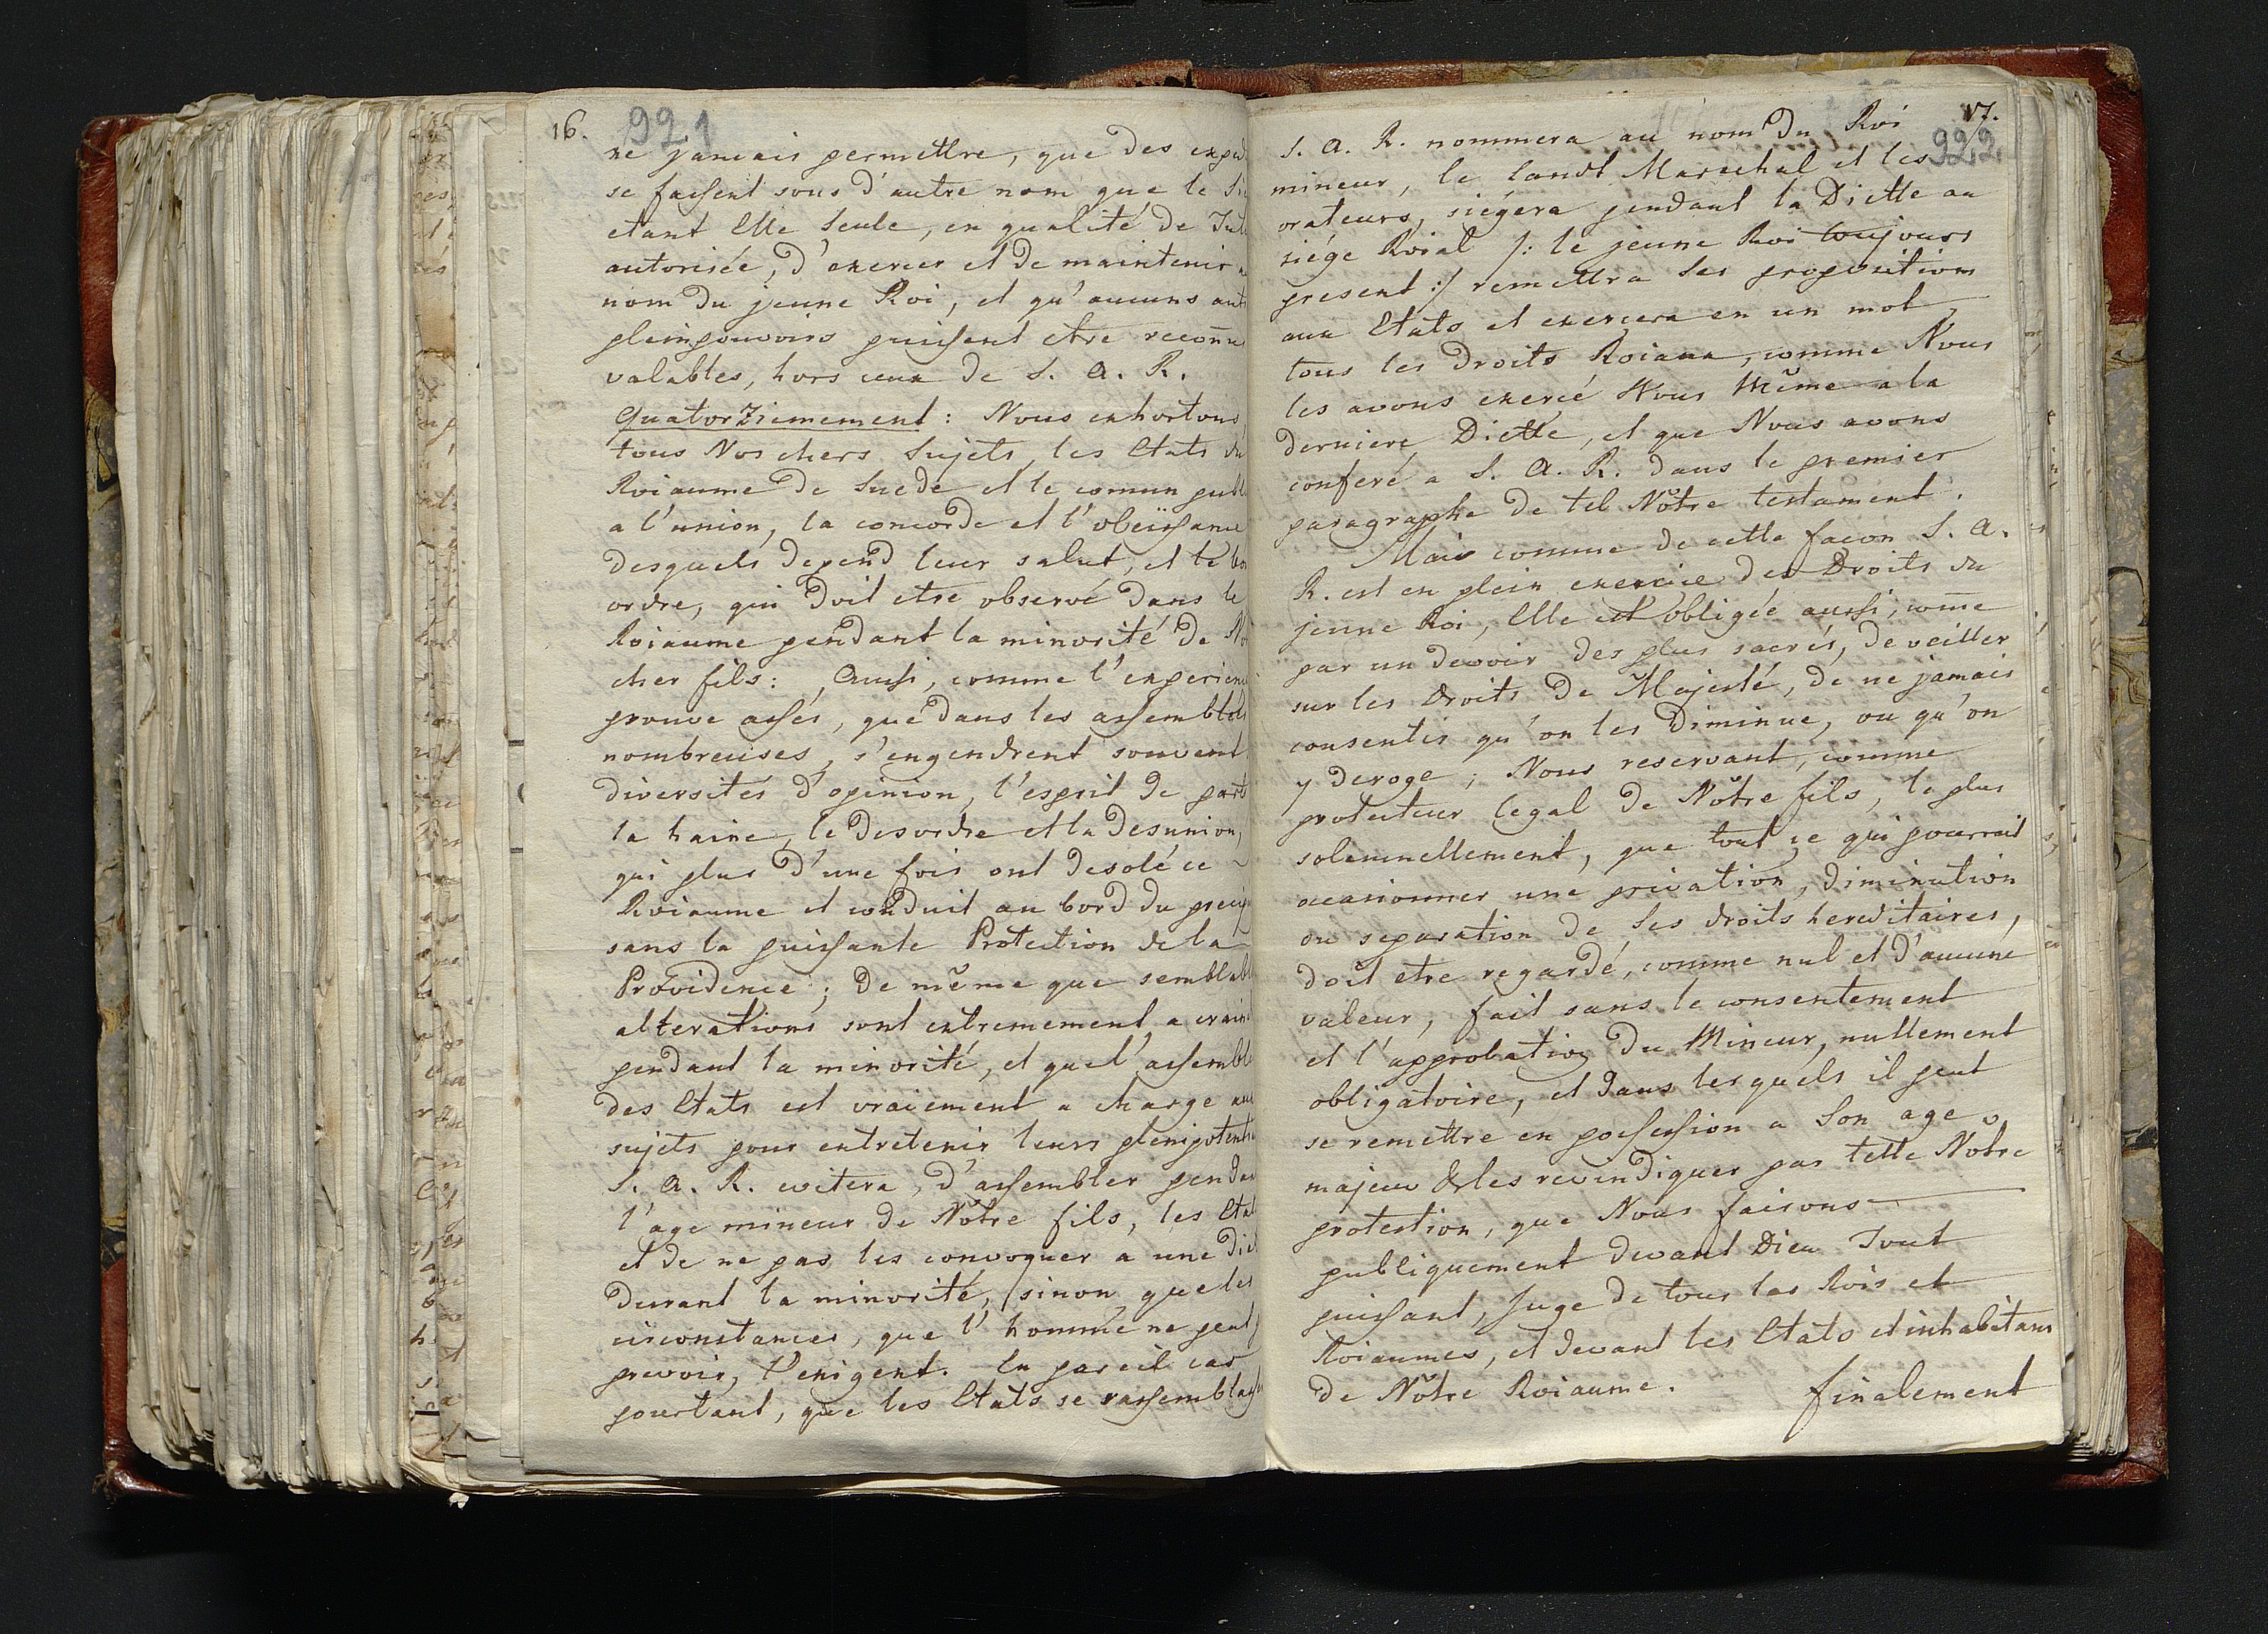 16.
921
ne jamais permettre, que des exped
se faissent sous d'autre nom que le Si
etant Elle Seule, en qualité de Tute
autorisée, d'exercer et de maintenir a
nom du jeune Roi, et qu'aucuns aut
pleinpouvoirs puissent etre reconn̄u
valables, hors ceux de S. A. R.
Quatorziemement: Nous exhortons
tous Nos chers Sujets, les Etats du
Roiaume de Suede et le comun publ
a l'union, la concorde et l'obeïssance
desquels depend leur salut, et le bo
ordre, qui doit etre observé dans le
Roiaume pendant la minorité de No
cher fils: Aussi, comme l'experienc
prouve assés, que dans les assemblées
nombreuses, s'engendrent souvent
diversités d'opinion, l'esprit de parti
la haine, le desordre et la desunion,
qui plus d'une fois ont desolé ce ~
Roiaume et conduit au bord du precip
sans la puissante Protection de la
Providence; de même que semblabl
alterations sont extremement a crain
pendant la minorité, et que l'assemblé
des Etats est vraiement a charge aux
sujets pour entretenir leurs plenipotenti
S. A. R. evitera, d'assembler pendan
l'age mineur de Nôtre fils, les Etat
et de ne pas les convoquer a une Diet
durant la minorité, sinon que les
circonstances, que l'homme ne peut p
prevoir, l'exigent. En pareil cas
pourtant, que les Etats se rassemblass
17.
922
S. A. R. nommera au nom du Roi
mineur, le Landt Marechal et les
orateurs, siégera pendant la Diette au
siége Roial /: le jeune Roi toujours
present :/ remettra ses propositions
aux Etats et exercera en un mot,
tous les Droits Roiaux, comme Nous
les avons exercé Nous Même a la
derniere Diette, et que Nous avons
conferé a S. A. R. dans le premier
paragraphe de tel Nôtre testament.
Mais comme de cette facon S. A.
R. est en plein exercice des Droits du
jeune Roi, Elle est obligée aussi, com̄e
par un devoir des plus sacrés, de veiller
sur les Droits de Majesté, de ne jamais
consentir qu'on les diminue, ou qu'on
y deroge; Nous reservant, comme
protecteur legal de Nôtre fils, le plus
solemnellement, que tout ce qui pourrait
occasionner une privation, diminution
ou separation de ses droits hereditaires,
doit etre regardé, comme nul et d'aucune
valeur, fait sans le consentement
et l'approbation du Mineur, nullement
obligatoire, et dans lesquels il peut
se remettre en possession a Son age
majeur & les revindiquer par telle Nôtre
protestion, que Nous faisons
publiquement devant Dieu Tout
puissant, Juge de tous les Rois et
Roiaumes, et devant les Etats et inhabitans
de Nôtre Roiaume.
finalement